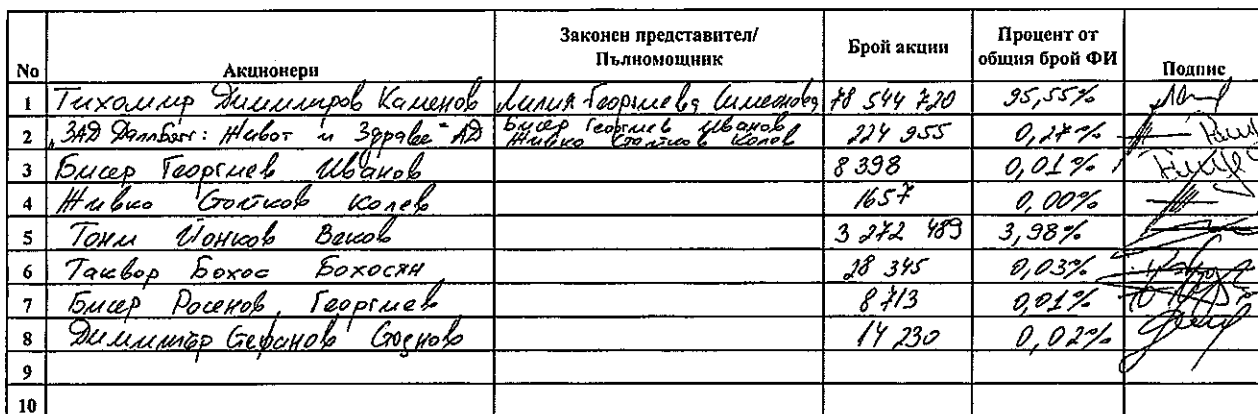 No Акционери Законен представител/ Пълномощник Брой акции Процент от общия брой ФИ Подпис
1 Тихомир Димитров Каменов Лилия Георгиева Симеонова 78 544 720 95,55%
2 "ЗАД Далл Богг: Живот и Здраве" АД Бисер Георгиев Иванов Живко Стойков Колев 224 955 0,27%
3 Бисер Георгиев Иванов 8 398 0,01%
4 Живко Стойков Колев 1657 0,00%
5 Тони Йонков Веков 3 272 489 3,98%
6 Таквор Бохос Бохосян 28 345 0,03%
7 Бисер Росенов Георгиев 8 713 0,01%
8 Димитър Стефанов 14 230 0,02%
9
10